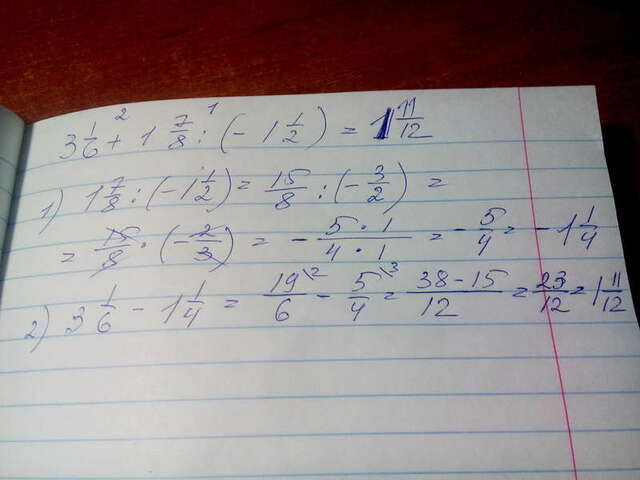 3 1/6 + 1 7/8 : (- 1 1/2) = 1 11/12
1) 1 7/8 : (-1 1/2) = 15/8 : (- 3/2) =
= 15/8 · (- 2/3) = - 5 · 1/4 · 1 = - 5/4 = - 1 1/4
2) 3 1/6 - 1 1/4 = 19/6 \2 - 5/4 \3 = 38 - 15/12 = 23/12 = 1 11/12